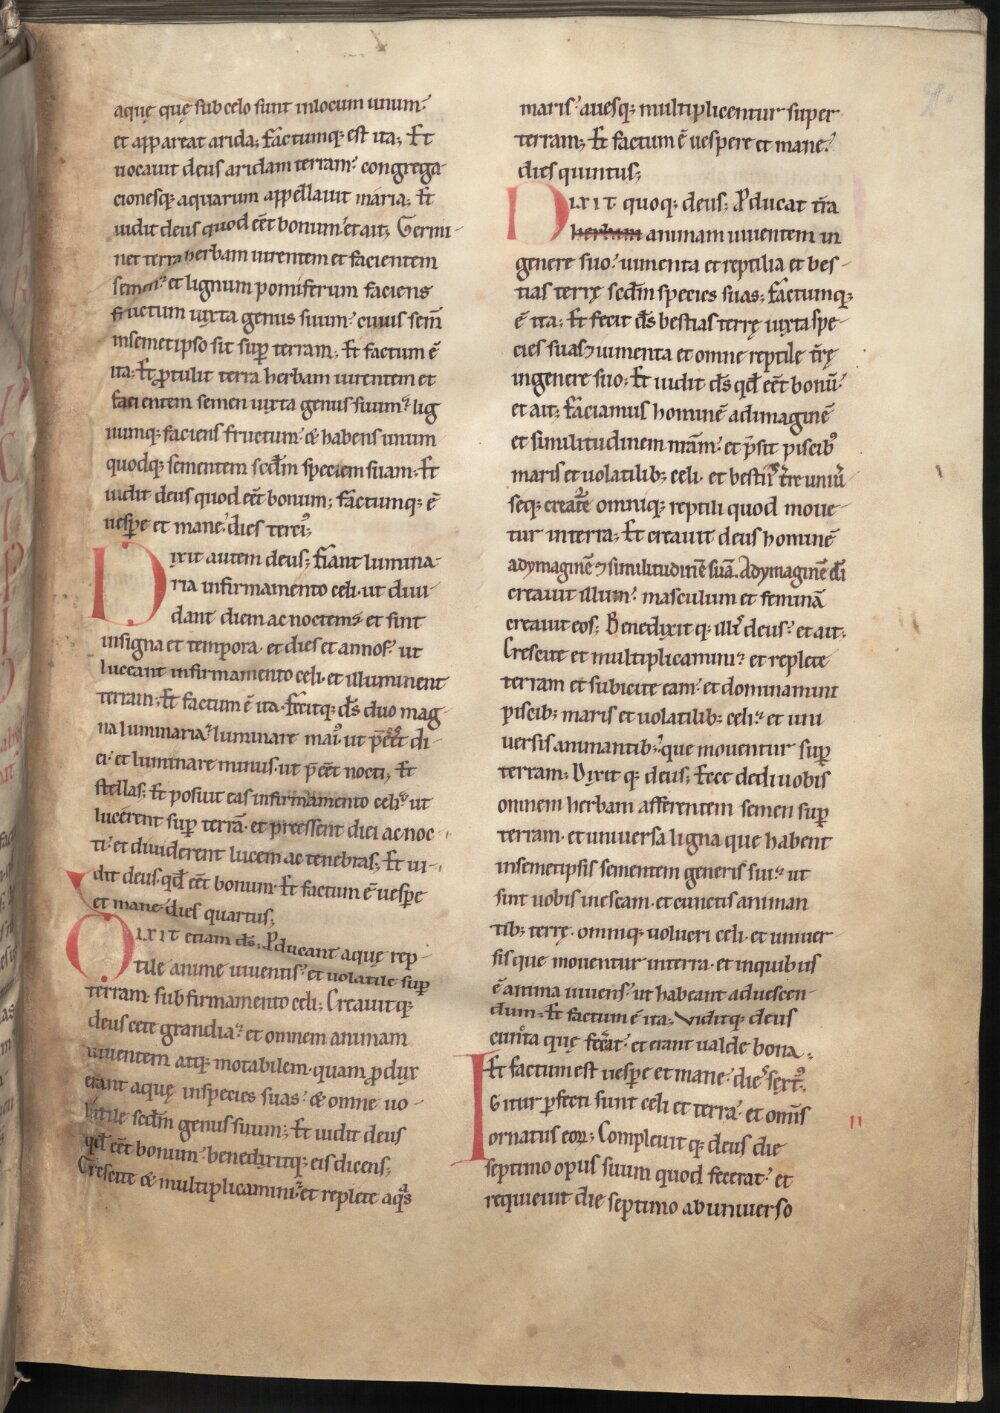 aquę quę sub celo sunt inlocum unum;
et appareat arida; Factumq; est ita; Et
uocauit deus aridam terram; congrega-
cionesq; aquarum appellauit maria; Et
uidit deus quod eēt bonum; et ait; Germi-
net terra herbam uirentem et facientem
semen; et lignum pomiferum faciens
fructum iuxta genus suum; cuius sem̄
insemetipso sit sup̱ terram; Et factum ē
ita; Et ꝓtulit terra herbam uirentem et
facientem semen iuxta genus suum; lig
numq; faciens fructum; & habens unum
quodq; sementem scd̄m speciem suam; Et
uidit deus quod eēt bonum; Factumq; ē
uesꝑe et mane; dies terciꝰ;
Dixit autem deus; Fiant lumina-
ria infirmamento celi. ut diui
dant diem ac noctem; et sint
insigna et tempora. et dies et annos; ut
luceant infirmamento celi. et illuminent
terram; Et factum ē ita. Fecitq; ds̄ duo mag
na luminaria; luminare maiꝰ ut p̄eēt di
ei; et luminare minus. ut p̄eēt nocti; Et
stellas; Et posuit eas infirmamento celi; ut
lucerent suꝑ terrā. et preessent diei ac noc
ti; et diuiderent lucem ac tenebras; Et ui-
dit deus. qd̄ eēt bonum. Et factum ē uesꝑe
et mane. dies quartus;
DIXIT etiam ds̄; Ꝓducant aquę rep-
tile anime uiuentis; et uolatile suꝑ
terram. sub firmamento celi; Creauitq;
deus cete grandia; et omnem animam
uiuentem atq; motabilem. quam ꝓdux
erant aquę inspecies suas; & omne uo-
latile scd̄m genus suum; Et uidit deus
qd̄ eēt bonum; benedixitq; eis dicens;
Crescite & multiplicamini; et replete aqᵃs
maris; auesq; multiplicentur super
terram; Et factum ē uespere et mane;
dies quintus;
DIXIT quoq; deus; Ꝓducat tr̄a
herbam animam uiuentem in
genere suo; iumenta et reptilia et bes-
tias terrę scd̄m species suas; Factumq;
ē ita; Et fecit ds̄ bestias terrę iuxta spe-
cies suas ⁊ iumenta et omne reptile tr̄ę
ingenere suo; Et uidit ds̄ qd̄ eēt bonū;
et ait; Faciamus hominē adimaginē
et similitudinem nrām; et p̄sit piscibꝰ
maris et uolatilib; celi. et bestiis tr̄e uniū
seq; creatr̄e omniq; reptili quod moue-
tur interra; Et creauit deus hominē
adymaginē ⁊ similitudinē suā. Adymaginē dī
creauit illum; masculum et feminā
creauit eos; Benedixit q; illis deus; et ait;
Crescite et multiplicamini; et replete
terram et subicite eam; et dominamini
piscib; maris et uolatilib; celi; et uni
uersis animantib; que mouentur suꝑ
terram; Dixit q; deus; Ecce dedi uobis
omnem herbam afferentem semen suꝑ
terram. et uniuersa ligna que habent
insemetipsis sementem generis sui; ut
sint uobis inescam. et cunctis animan
tib; terrę. omniq; uolucri celi. et uniuer-
sis que mouentur interra. et inquibus
ē anima uiuens; ut habeant aduescen-
dum; Et factum ē ita; Viditq; deus
cuncta que fec̄at; et erant ualde bona;
Et factum est uesꝑe et mane; dies sextꝰ;
Igitur ꝑfecti sunt celi et terra; et om̄is
ornatus eoꝝ; Compleuit q; deus die
septimo opus suum quod fecerat; et
requieuit die septimo ab uniuerso